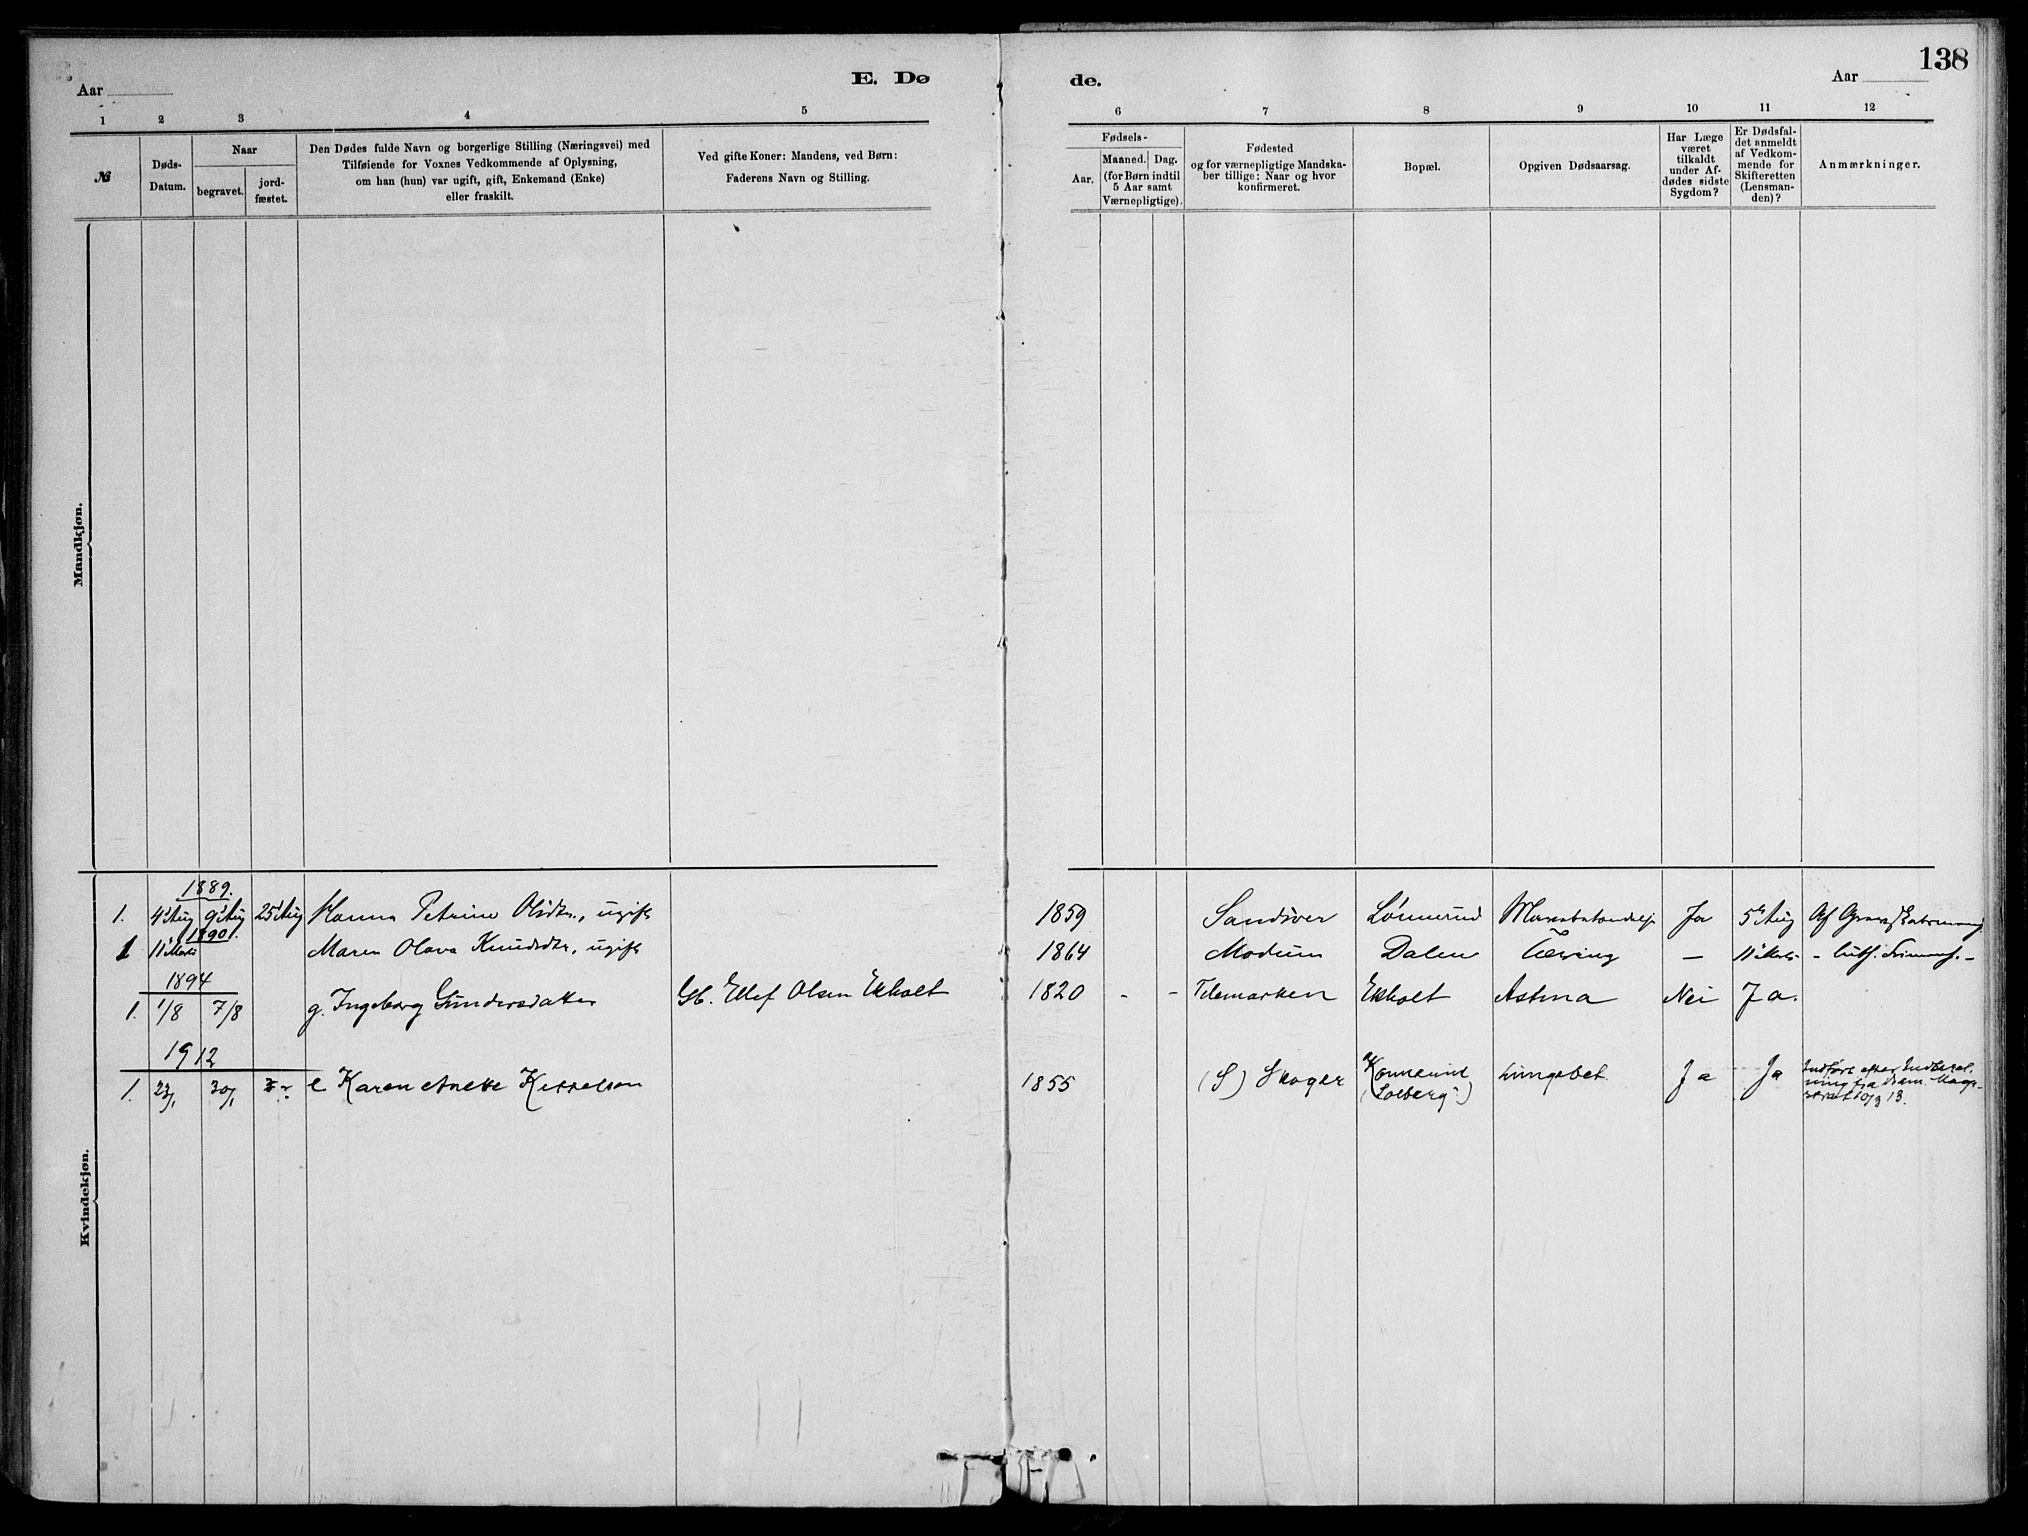 138
Aar
E. Dø
de.
Aar
1 2 3 4 5 6 7 8 9 10 11 12
№
Døds-
Datum.
Naar
begravet.
jord-
fæstet.
Den Dødes fulde Navn og borgerlige Stilling (Næringsvei) med
Tilføiende for Voxnes Vedkommende af Oplysning,
om han (hun) var ugift, gift, Enkemand (Enke)
eller fraskilt.
Ved gifte Koner: Mandens, ved Børn:
Faderens Navn og Stilling.
Fødsels-
Aar.
Maaned. Dag.
(for Børn indtil
5 Aar samt
Værnepligtige).
Fødested
og for værnepligtige Mandska-
ber tillige: Naar og hvor
konfirmeret.
Bopæl.
Opgiven Dødsaarsag.
Har Læge
været
tilkaldt
under Af-
dødes sidste
Sygdom?
Er Dødsfal-
det anmeldt
af Vedkom-
mende for
Skifteretten
(Lensman-
den)?
Anmærkninger.
Mandkjøn.
Kvindekjøn.
1889.
1. 4 Aug 9 Aug 25 Aug Hanna Petrine Olsdtr., ugift 1859 Sandsver Ja 5 Aug Af
1890.
1 11 Marts Maren Olava Knudsdtr, ugift 1864 Modum Dalen Tæring — 11 Marts - luth. -
1894
1. 1/8 7/8 g. Ingeborg Gundersdatter Gb. Ellef Olsen Ekholt 1820 - - Telemarken Ekholt Astma Nei Ja.
1912
1. 23/1 30/1 e Karen Anette Kittelsen 1855 (S) Skoger (Solberg) Ja Ja Indført efter Indberet-
ning fra Dram. Magi-
strat 10/3 13.